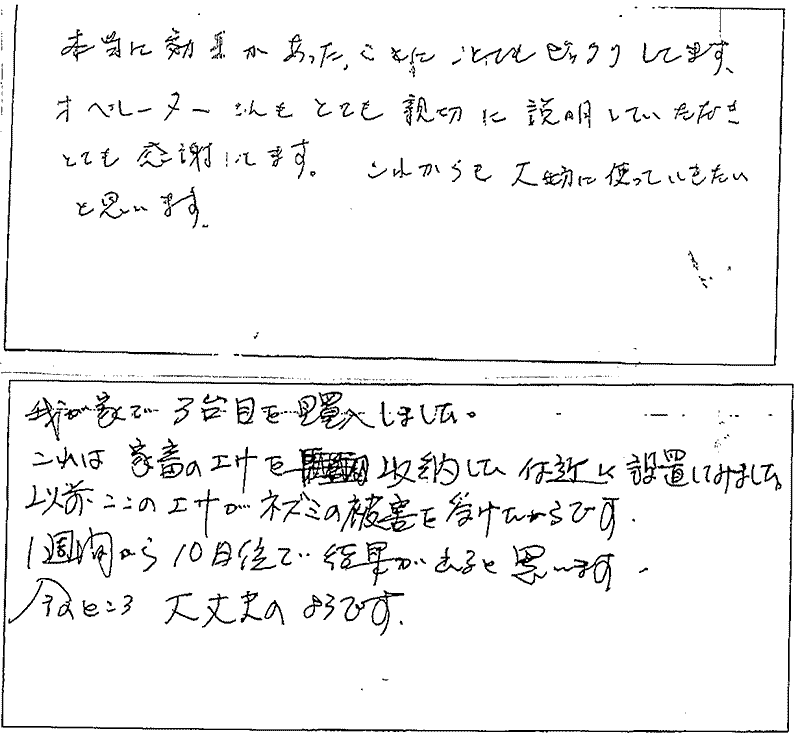 本当に効果があった、ことにとてもビックリしてます、
オペレーターさんもとても親切に説明していただき
とても感謝してます。これからも大切に使っていきたい
と思います.
我が家で3台目を購入しました。
これは家畜のエサを収納した付近に設置してみました。
以前ここのエサがネズミの被害を受けたからです.
1週間から10日位で結果が出ると思います.
今のところ大丈夫のようです.